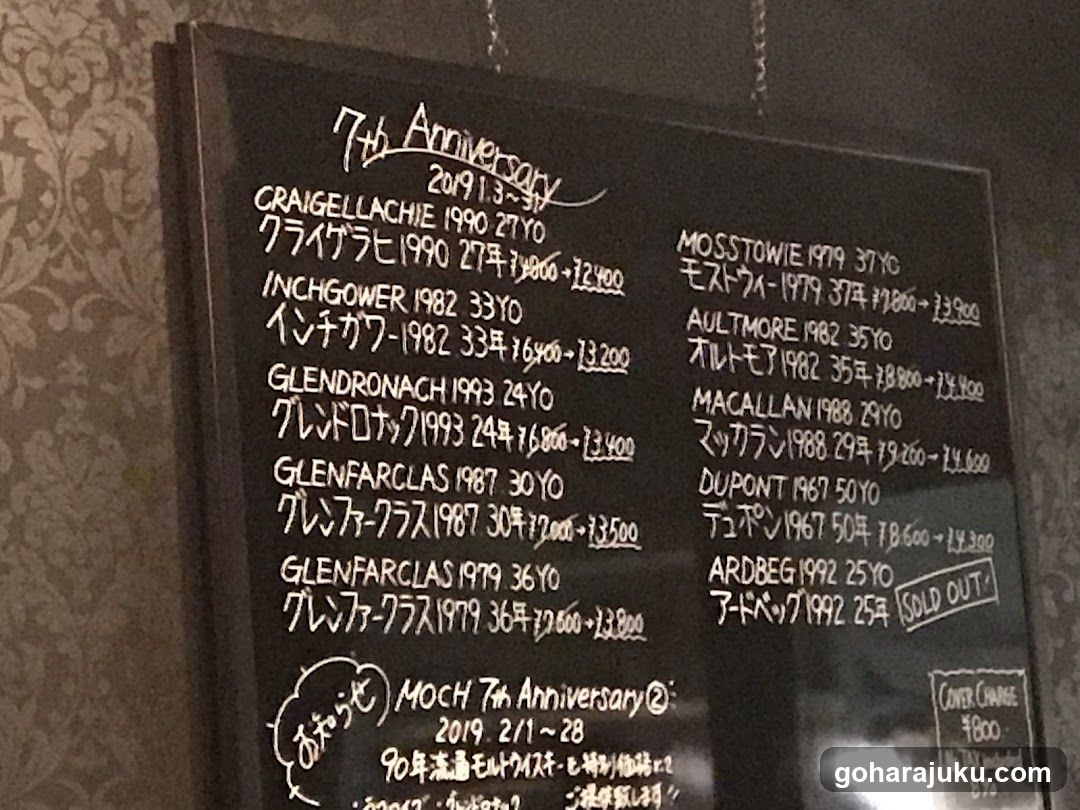 7th Anniversary
2019 1.3~31
CRAIGELLACHIE 1990 27YO
クライゲラヒ 1990 27年 ¥4,800→¥2,400
INCHGOWER 1982 33YO
インチガワー 1982 33年 ¥6,400→¥3,200
GLENDRONACH 1993 24YO
グレンドロナック 1993 24年 ¥6,800→¥3,400
GLENFARCLAS 1987 30YO
グレンファークラス 1987 30年 ¥7,000→¥3,500
GLENFARCLAS 1979 36YO
グレンファークラス 1979 36年 ¥7,600→¥3,800
MOSSTOWIE 1979 37YO
モストウィー 1979 37年 ¥7,800→¥3,900
AULTMORE 1982 35YO
オルトモア 1982 35年 ¥8,800→¥4,400
MACALLAN 1988 29YO
マッカラン 1988 29年 ¥9,200→¥4,600
DUPONT 1967 50YO
デュポン 1967 50年 ¥8,600→¥4,300
ARDBEG 1992 25YO
アードベッグ 1992 25年 SOLD OUT!
お知らせ
MOCH 7th Anniversary②
2019. 2/1~28
90年流通モルトウイスキーを特別価格にて
ご提供致します!!
COVER CHARGE
¥800
goharajuku.com